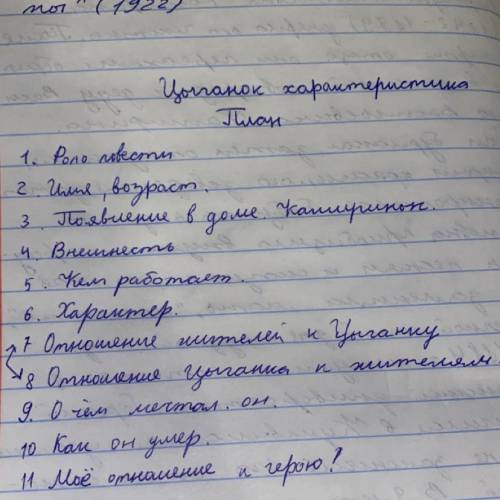 ны" (1922)
Цыганок характеристика
План
1. Роль повести
2. Имя, возраст.
3. Появление в доме Кашириных.
4. Внешность
5. Кем работает.
6. Характер.
7 Отношение жителей к Цыганку
8 Отношение Цыганка к жителям.
9. О чём мечтал он.
10 Как он умер.
11 Моё отношение к герою!